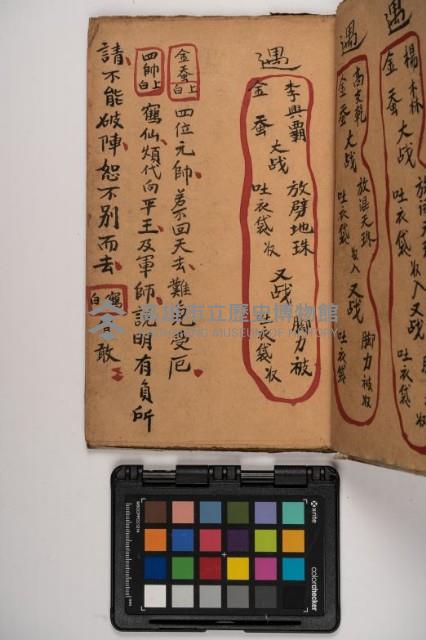 遇 楊木林
金蚕 大战
吐衣袋 收入 又战
吐衣袋
遇 高文乾 放混天珠
金蚕 大战
吐衣袋 收入 又战 脚力被收
吐衣袋
遇 李興霸 放劈地珠
金蚕 大战
吐衣袋 收 又战 脚力被
吐衣袋 收
金蚕上白 四位元帅 若不回天去 難免受厄
四帥上白 鶴仙煩代向平王及軍師說明有負所
請不能破陣恕不别而去 鶴白 敢
高雄市立歷史博物館
KAOHSIUNG MUSEUM OF HISTORY
x-rite
colorchecker